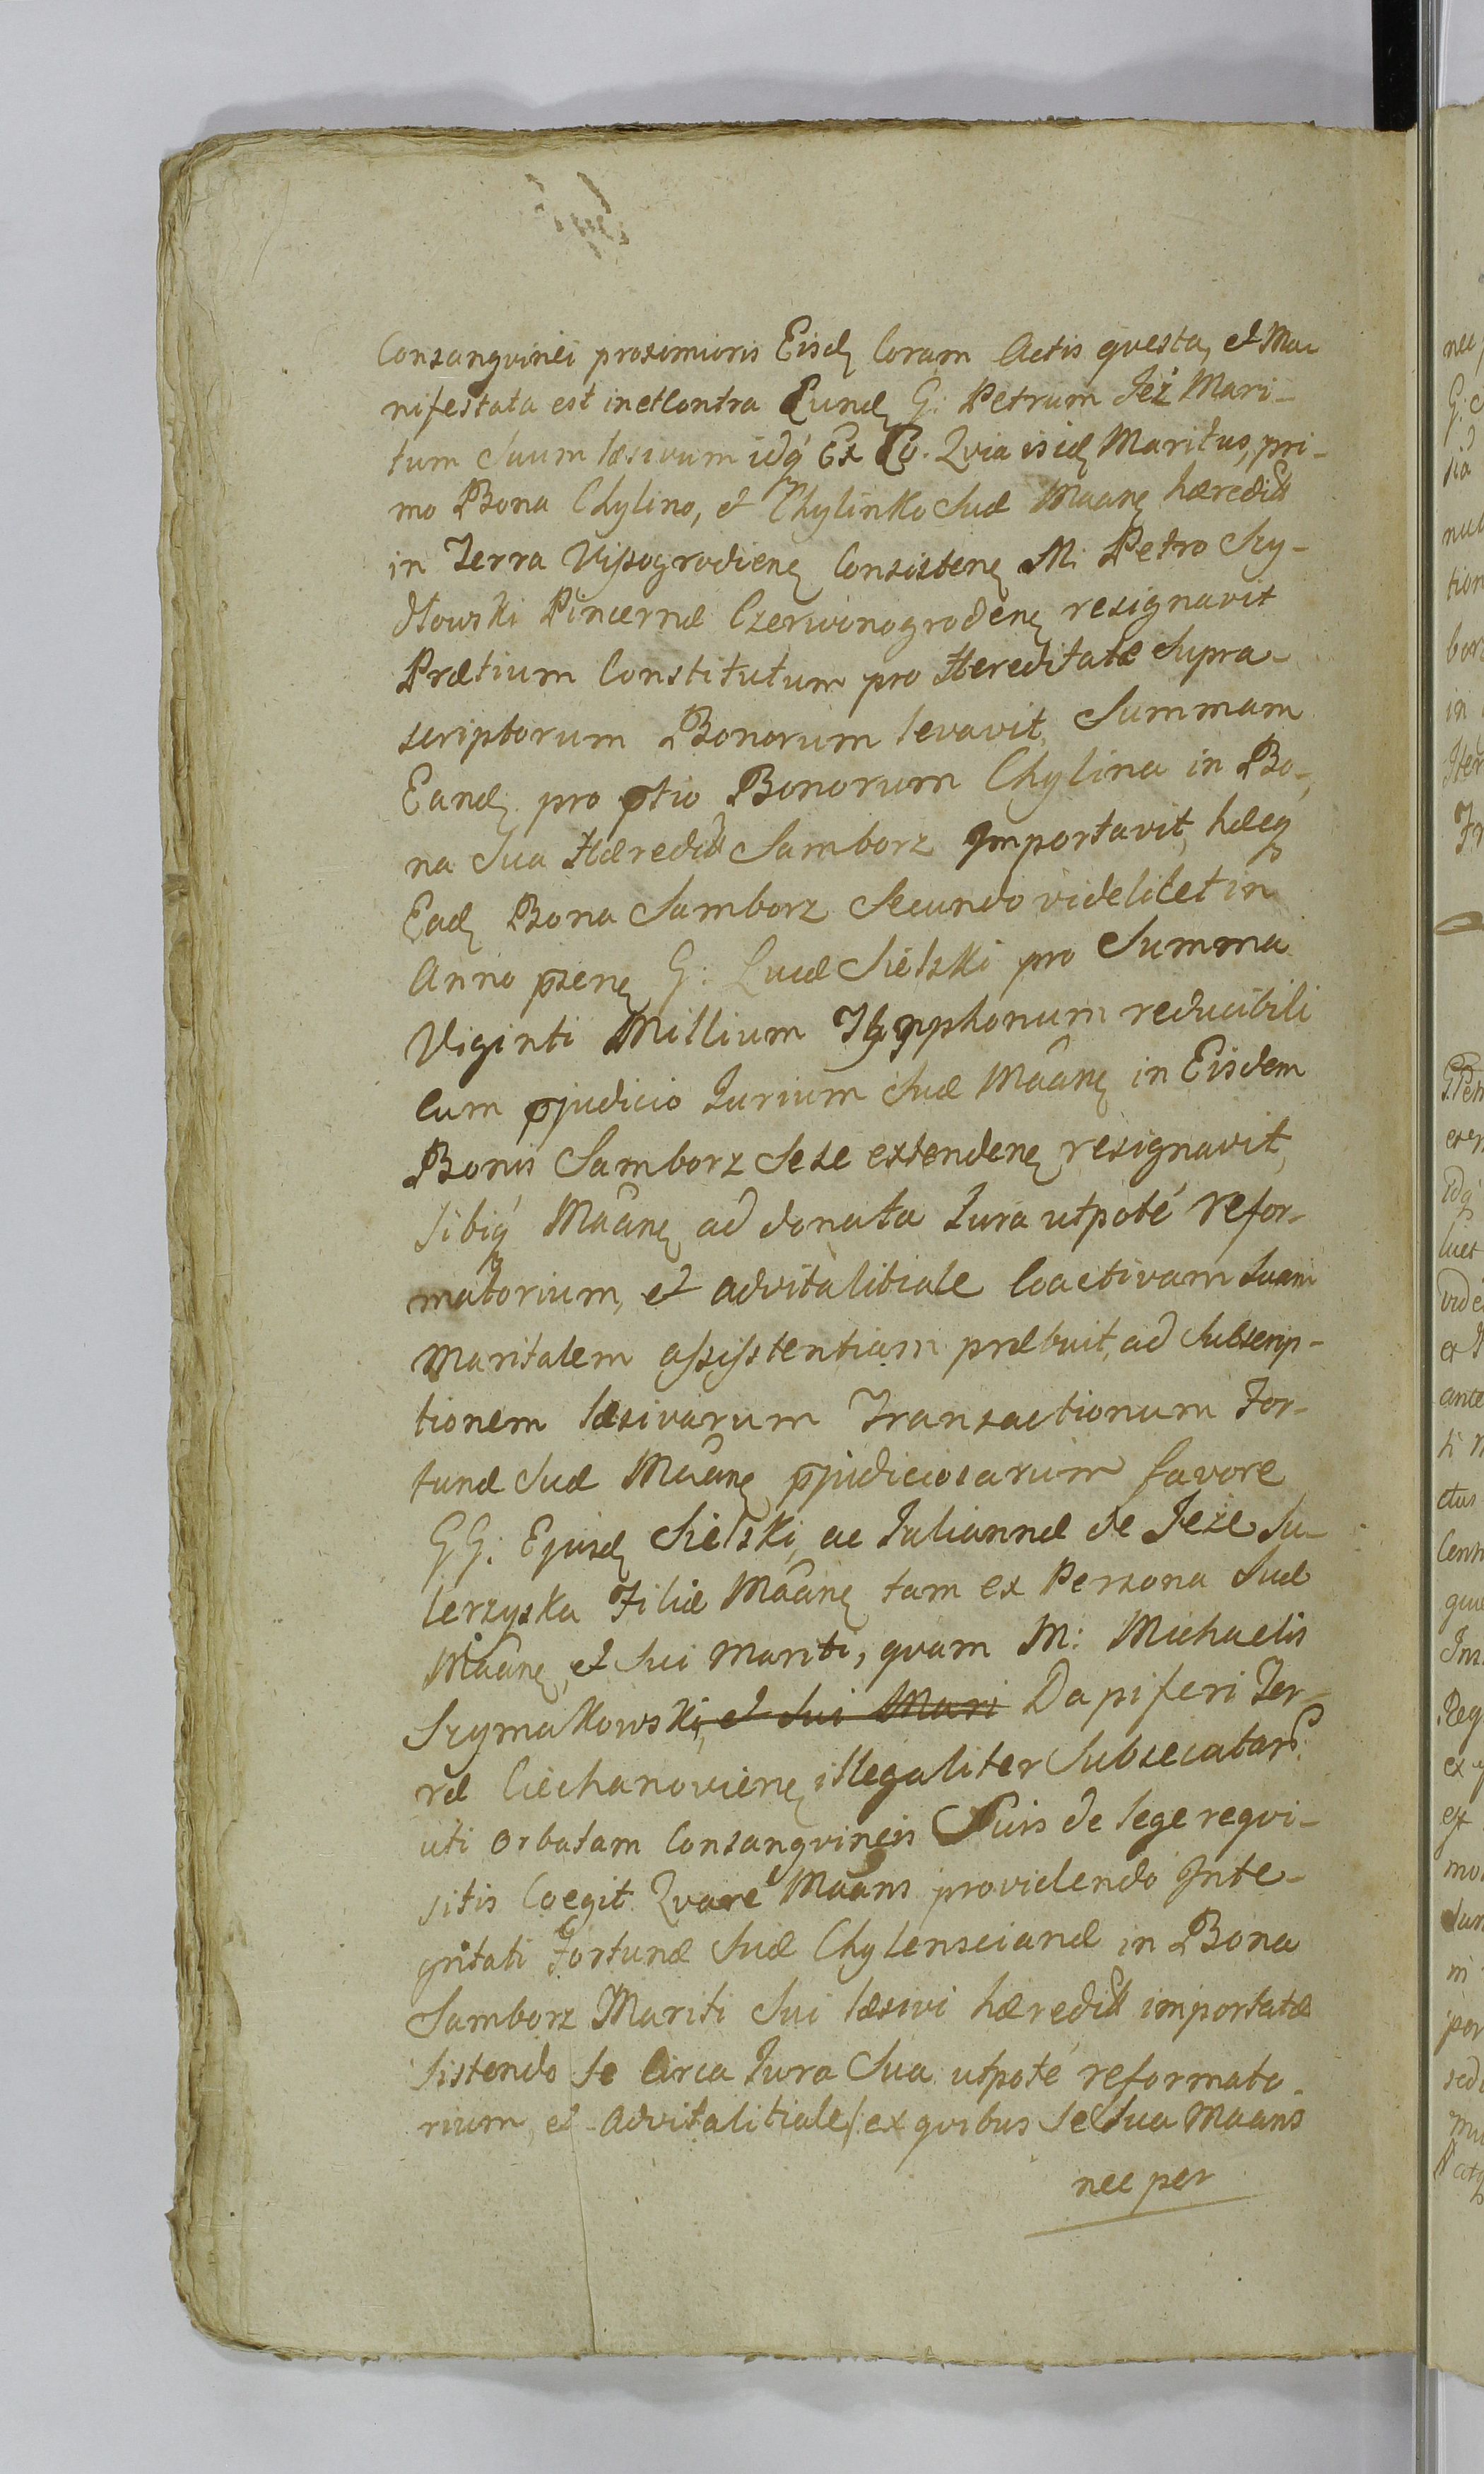 Consangvinei proximioris Eisd Coram Actis qvesta, et Ma-
nifestata est in et Contra Eund G: Petrum Jeż Mari-
tum Suum læsivum idq Ex Eo. Qvia isid Maritus, pri-
mo Bona Chylino, et Chylinko Suæ Maane hæredit
in Terra Vissogrodiene Consistene M: Petro Szy-
dłowski Pincernæ Czerwonogrodene resignavit
Prætium Constitutum pro Hereditate Supra-
scriptorum Bonorum levavit, Summam
Eand pro ptio Bonorum Chylina in Bo-
na Sua Hæredit Samborz Importavit, hæcq
Ead Bona Samborz Secundo videlicet in
Anno psene G: Lucæ Sielski pro Summa
Viginti Millium Tynpphonum reducibili
Cum pjudicio Jurium Suæ Maane in Eisdem
Bonis Samborz Sese extendene resignavit,
Sibiq Maane ad donata Jura utpotè refor-
matorium, et advitalitiale Coactivam Suam
Maritalem assistentiam præbuit, ad Subscrip-
tionem læsivarum Transactionum For-
tunæ Suæ Maane pjudiciosarum favore
GG: Ejusd Sielski, ac Juliannæ de Jeże Su-
lerzyska Filiæ Maane tam ex Persona Suæ
Maane, et Sui Mariti, qvam M: Michaelis
Szymakowski, et Sui Mari Dapiferi Ter-
ræ Ciechanoviene illegaliter Subsecatar:
uti orbatam Consangvineis Suis de lege reqvi-
sitis Coegit. Qvarè Maans providendo Inte-
gritati Fortunæ Suæ Chylenscianæ in Bona
Samborz Mariti Sui læsivi hæredit importatæ
Sistendo Se Circa Jura Sua utpotè reformato-
rium, et Advitalitiale/: ex qvibus Se Sua Maans
nec per